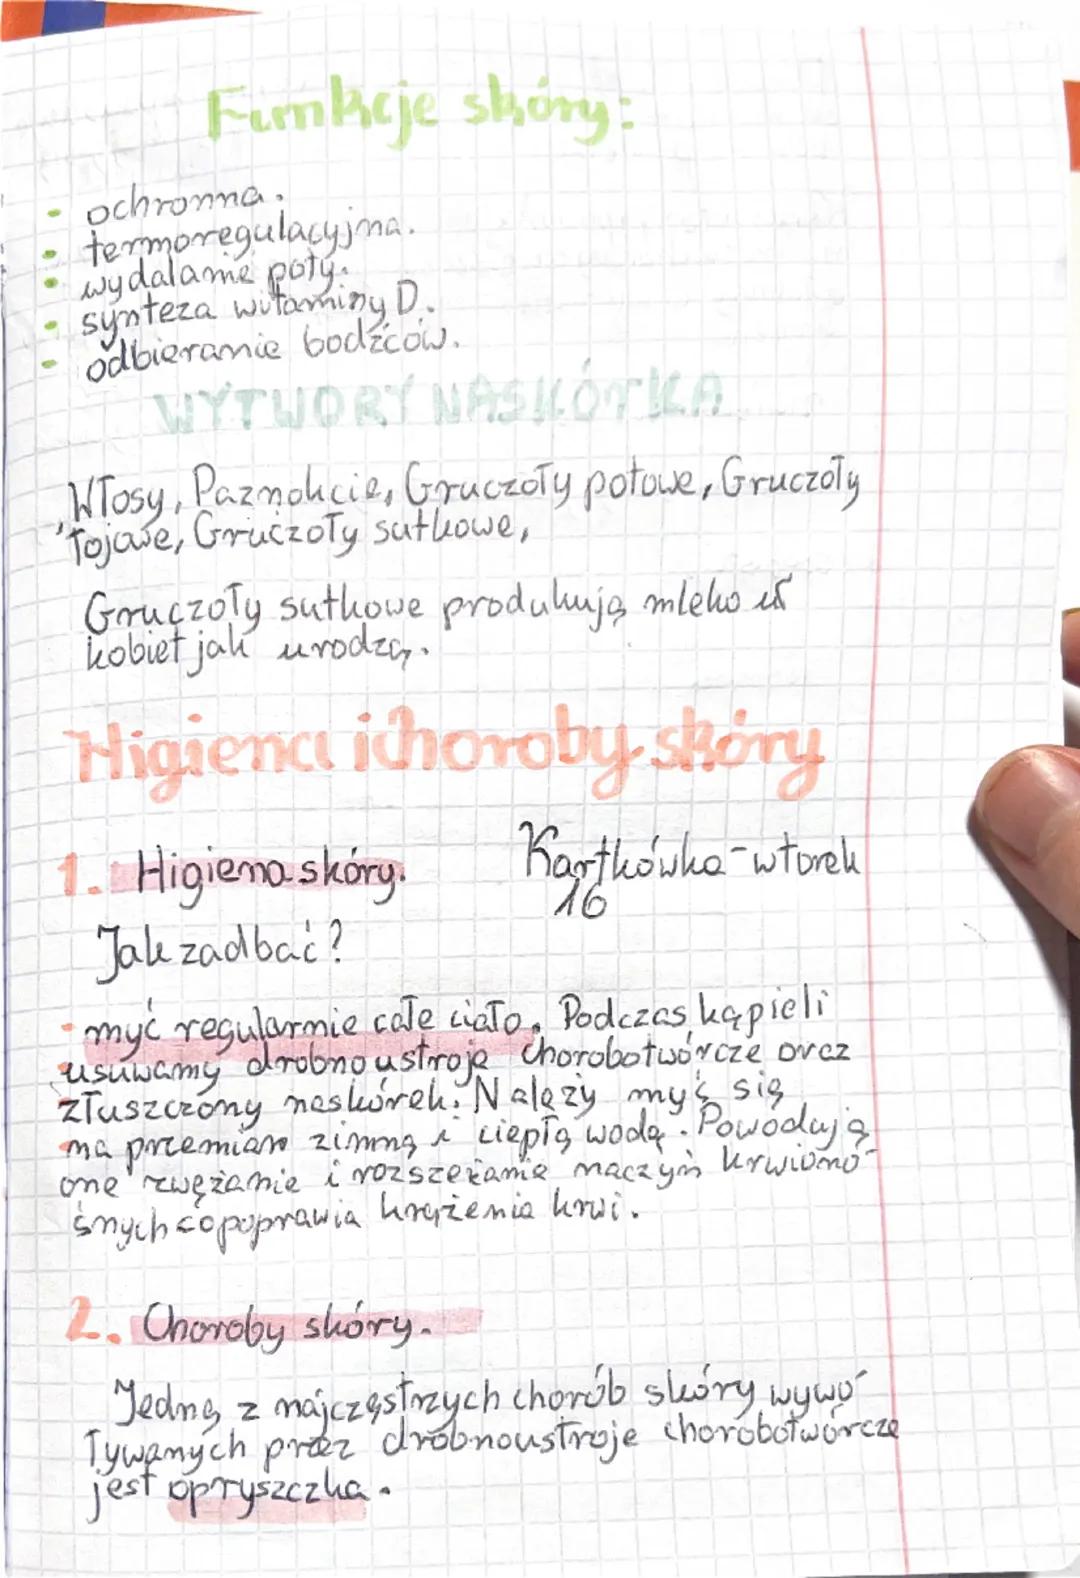 Funkcje skóry:
- ochronna.
- termoregulacyjna.
- wydalanie poty.
- synteza witaminy D.
- odbieranie bodźców.
WYTWORY NASKÓTKA
Włosy, Paznokcie, Gruczoły potowe, Gruczoły
łojowe, Gruczoły sutkowe,
Gruczoły sutkowe produkują mleko u
kobiet jak urodzą.
Higiena i choroby skóry
1. Higiena skóry. Kartkówka - wtorek
16
Jak zadbać?
- myć regularnie całe ciało. Podczas kąpieli
usuwamy drobnoustroje chorobotwórcze oraz
złuszczony naskórek. Należy myć się
na przemian zimną i ciepłą wodą. Powodują
one zwężanie i rozszeżanie naczyń krwiono-
śnych co poprawia krążenia krwi.
2. Choroby skóry.
Jedną z najczęstrzych chorób skóry wywo-
ływanych przez drobnoustroje chorobotwórcze
jest opryszczka.